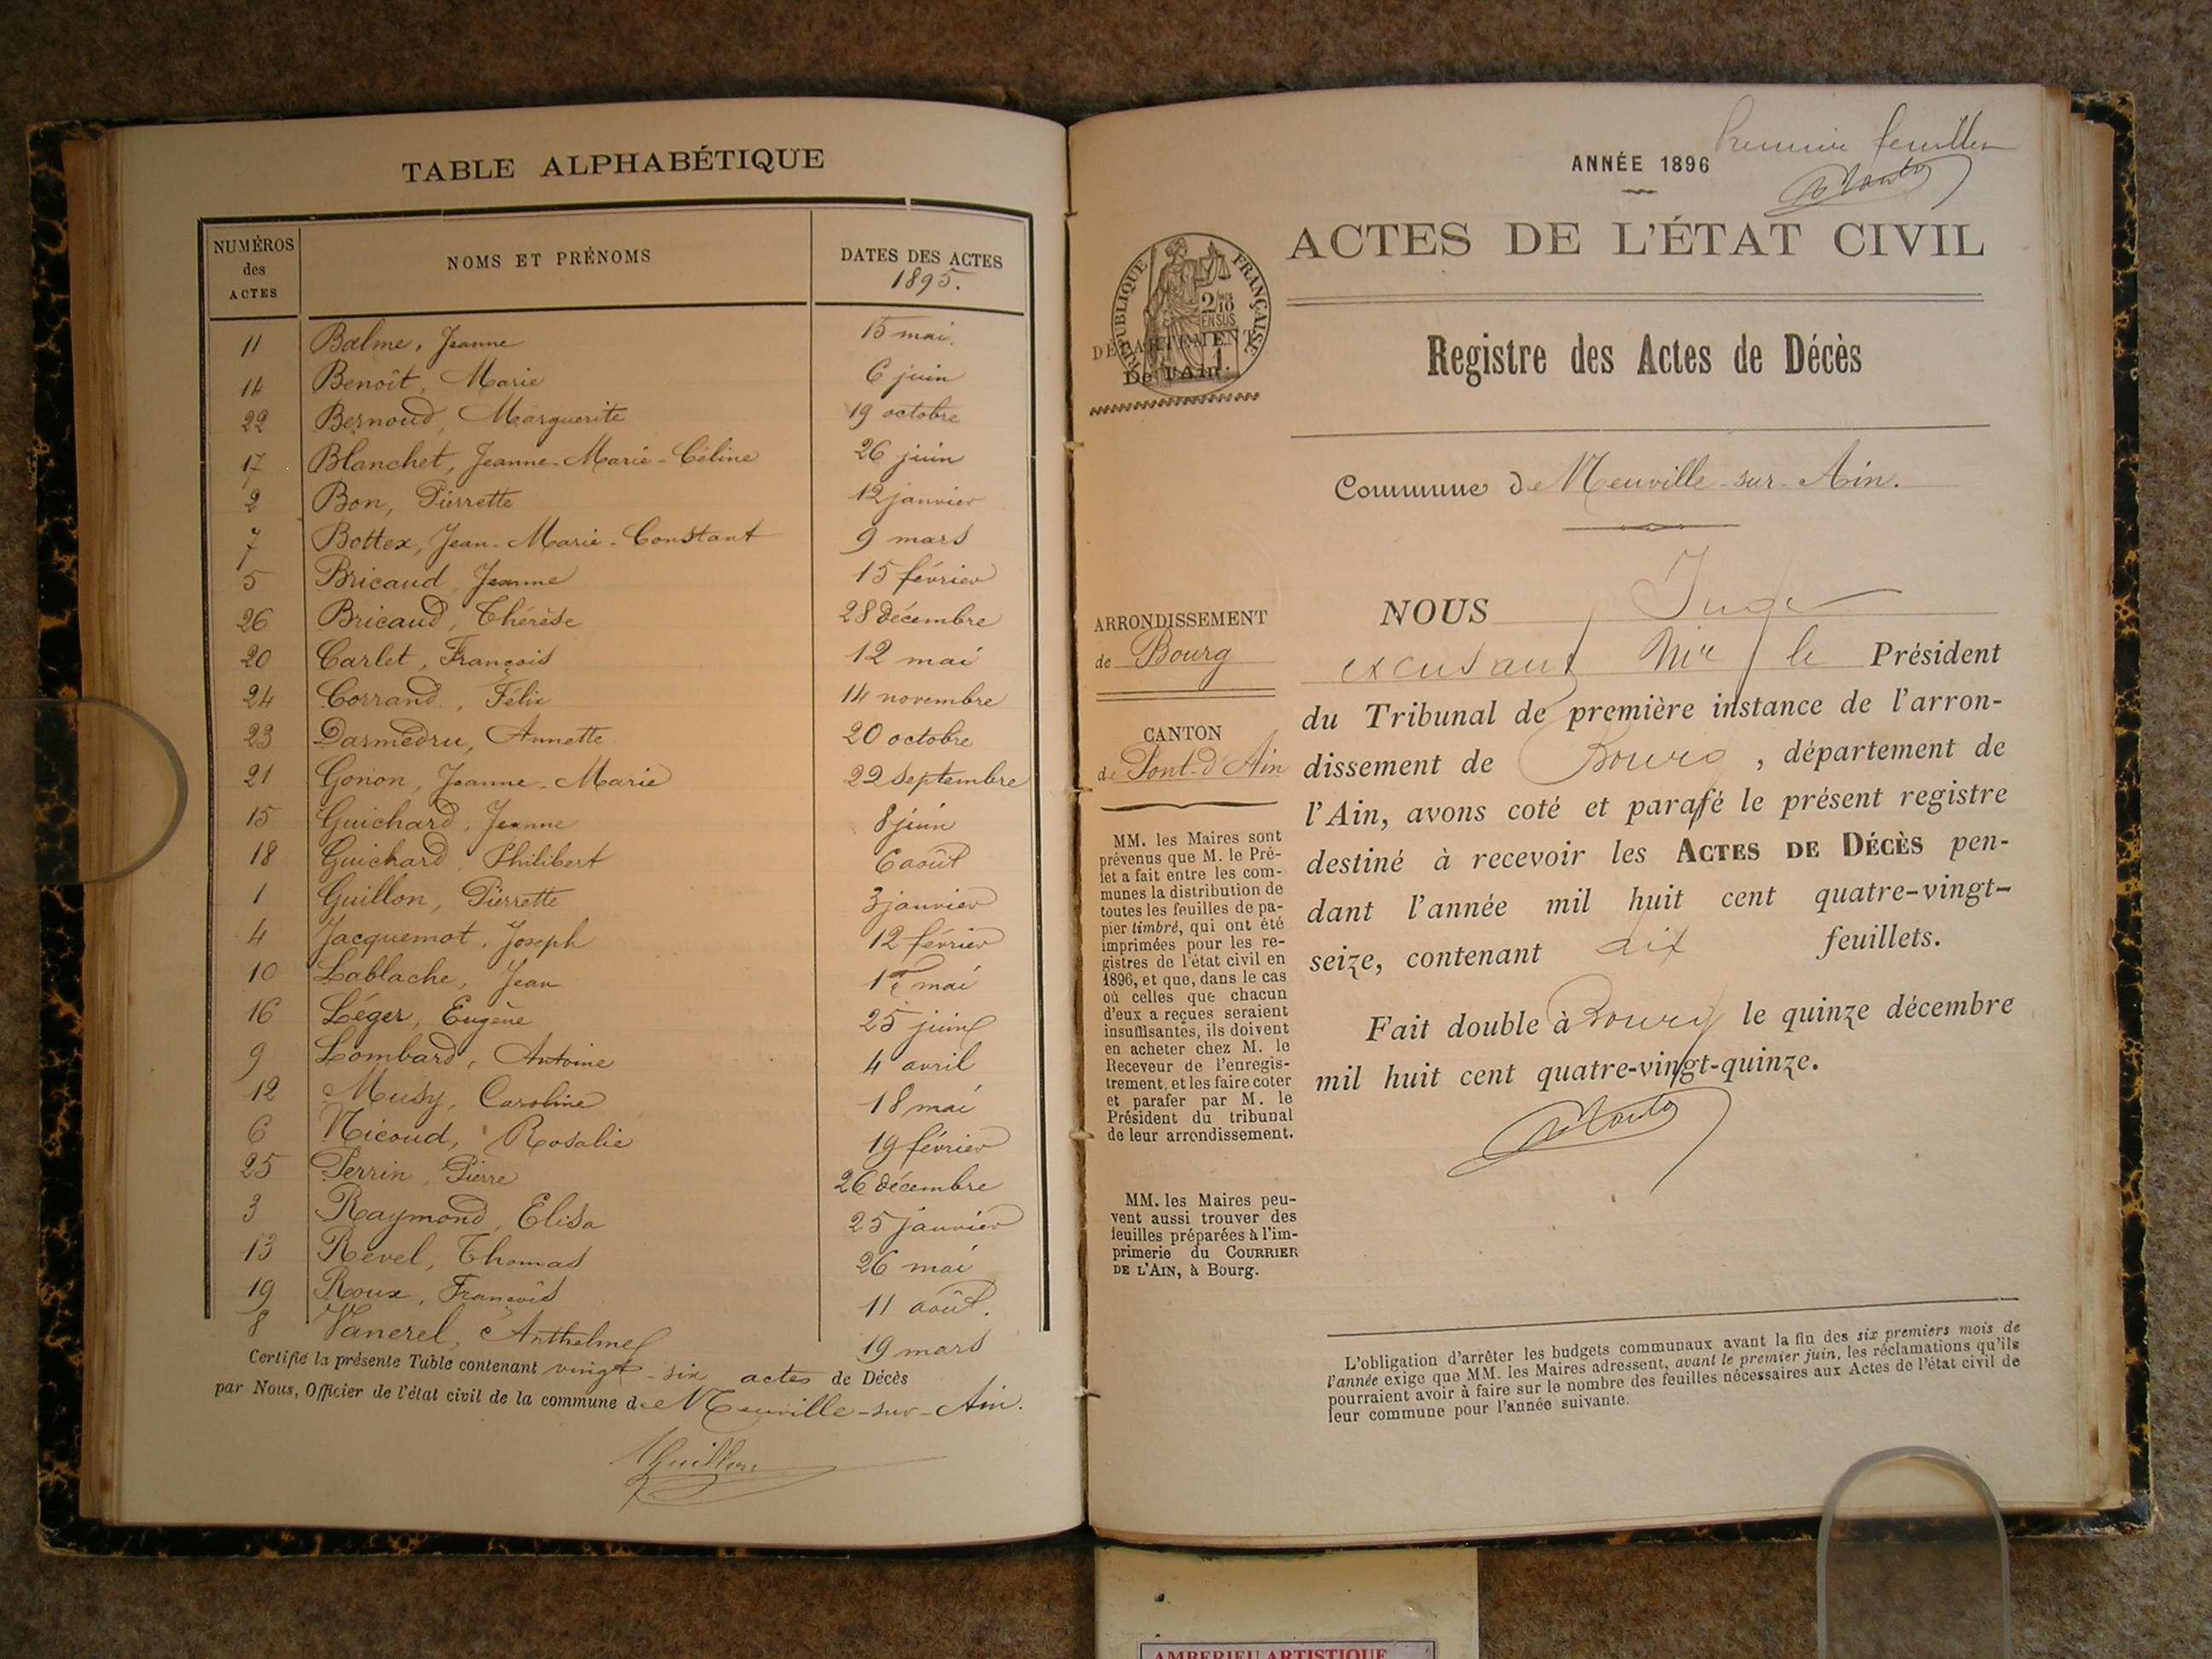 TABLE ALPHABÉTIQUE
NUMÉROS des ACTES NOMS ET PRÉNOMS DATES DES ACTES 1895.
11 Balme, Jeanne 15 mai.
14 Benoît, Marie 6 juin
22 Bernoud, Marguerite 19 octobre
17 Blanchet, Jeanne-Marie-Céline 26 juin
2 Bon, Pierrette 12 janvier
7 Bottex, Jean-Marie-Constant 9 mars
5 Bricaud, Jeanne 15 février
26 Bricaud, Thérèse 28 décembre
20 Carlet, François 12 mai
24 Corrand, Félix 14 novembre
23 Darmedru, Annette 20 octobre
21 Gonon, Jeanne-Marie 22 septembre
15 Guichard, Jeanne 8 juin
18 Guichard, Philibert 6 août
1 Guillon, Pierrette 3 janvier
4 Jacquemot, Joseph 12 février
10 Lablache, Jean 1er mai
16 Léger, Eugène 25 juin
9 Lombard, Antoine 4 avril
12 Musy, Caroline 18 mai
6 Nicoud, Rosalie 19 février
25 Perrin, Pierre 26 décembre
3 Raymond, Elisa 25 janvier
13 Revel, Thomas 26 mai
19 Roux, François 11 août.
8 Vanerel, Anthelme 19 mars
Certifié la présente Table contenant vingt-six actes de Décès
par Nous, Officier de l'état civil de la commune de Neuville-sur-Ain.
Guillon
Premier feuillet
ANNÉE 1896
ACTES DE L'ÉTAT CIVIL
RÉPUBLIQUE FRANÇAISE
DÉPARTEMENT
De l'Ain.
Registre des Actes de Décès
Commune de Neuville-sur-Ain.
ARRONDISSEMENT
de Bourg
CANTON
de Pont-d'Ain
MM. les Maires sont
prévenus que M. le Pré-
fet a fait entre les com-
munes la distribution de
toutes les feuilles de pa-
pier timbré, qui ont été
imprimées pour les re-
gistres de l'état civil en
1896, et que, dans le cas
où celles que chacun
d'eux a reçues seraient
insuffisantes, ils doivent
en acheter chez M. le
Receveur de l'enregis-
trement, et les faire coter
et parafer par M. le
Président du tribunal
de leur arrondissement.
MM. les Maires peu-
vent aussi trouver des
feuilles préparées à l'im-
primerie du COURRIER
DE L'AIN, à Bourg.
NOUS Juge
excusant Mr le Président
du Tribunal de première instance de l'arron-
dissement de Bourg, département de
l'Ain, avons coté et parafé le présent registre
destiné à recevoir les ACTES DE DÉCÈS pen-
dant l'année mil huit cent quatre-vingt-
seize, contenant dix feuillets.
Fait double à Bourg le quinze décembre
mil huit cent quatre-vingt-quinze.
L'obligation d'arrêter les budgets communaux avant la fin des six premiers mois de
l'année exige que MM. les Maires adressent, avant le premier juin, les réclamations qu'ils
pourraient avoir à faire sur le nombre des feuilles nécessaires aux Actes de l'état civil de
leur commune pour l'année suivante.
AMBERIEU ARTISTIQUE